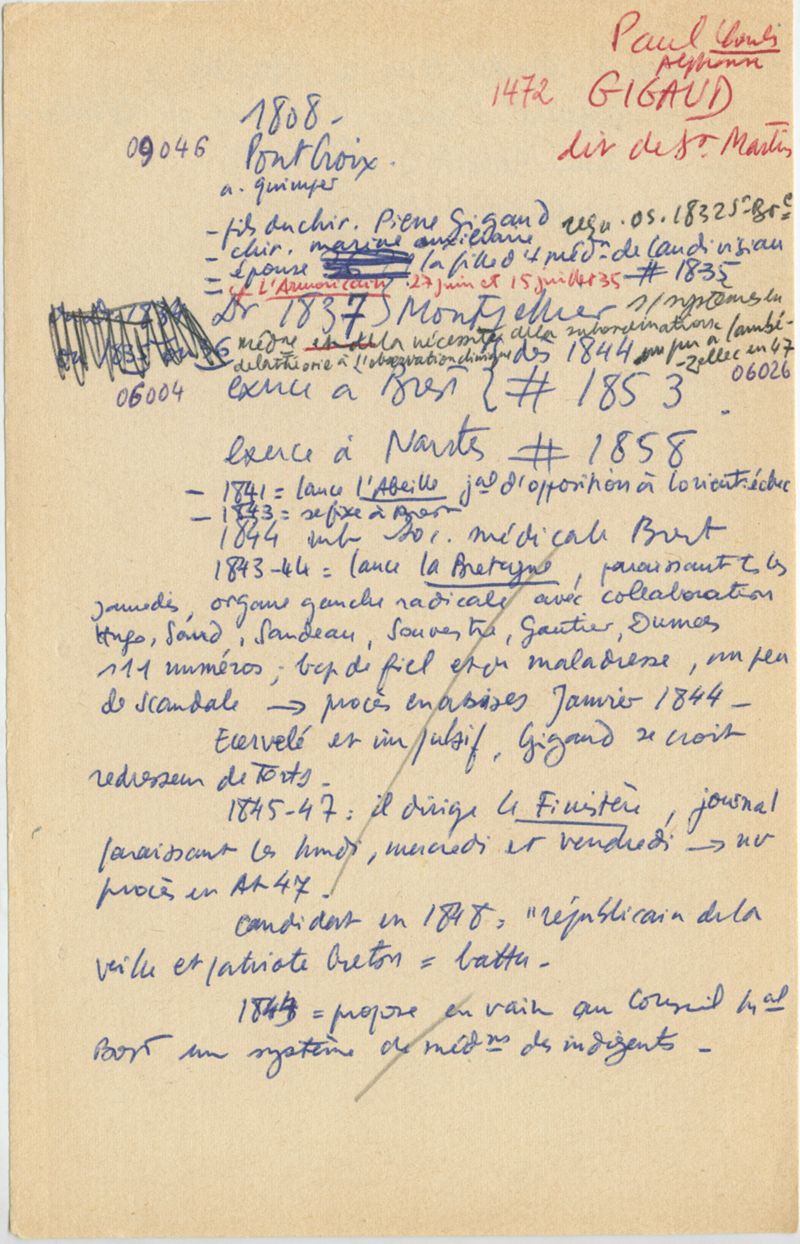 Paul Louis
Alphonse
1472 GIGAUD
dit de St Martin
1808 -
09046 Pont Croix.
a. Quimper
- fils du chir. Pierre Gigaud
- chir. marine auxiliaire reçu . os. 1832 St-Brc
= épouse la fille d'1 médn de Landivisiau
= cf L'Armoricain 27 juin et 15 juillet 35 # 1835
Dr 1837 Montpellier s/ systèmes en
médne de la nécessité de la subordination
de la théorie à l'observation clinique dès 1844 un peu à Lambé-
zellec en 47
06004 exerce à Brest } # 1853 06026
exerce à Nantes # 1858
- 1841 = lance l'Abeille jal d'opposition à Lorient : échec
- 1843 = se fixe à Brest
1844 mb Soc. médicale Brest
1843-44 = lance la Bretagne, paraissant ts les
samedis, organe gauche radicale avec collaboration
Hugo, Sand, Sandeau, Souvestre, Gautier, Dumas
111 numéros ; bcp de fiel et de maladresse, un peu
de scandale → procès en assises Janvier 1844 -
Ecervelé et impulsif, Gigaud se croit
redresseur de torts -
1845-47 : il dirige le Finistère, journal
paraissant les lundi, mercredi et vendredi → nv
procès en At 47.
candidat en 1848 = "républicain de la
veille et patriote breton = battu -
= propose en vain au Conseil pal
Brest un système de médns des indigents -